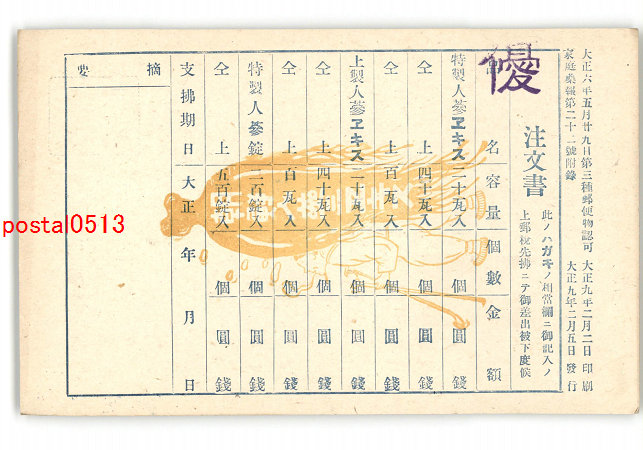 大正六年五月廿九日第三種郵便物認可 大正九年二月二日印刷
家庭藥報第二十二號附錄 大正九年二月五日發行
優
注文書
此ノハガキノ相當欄ニ御記入ノ
上郵稅先拂ニテ御差出被下度候
名 容量 個數 金額
特製人蔘ヱキス 二十瓦入 個 圓 錢
仝 上 四十瓦入 個 圓 錢
仝 上 百瓦入 個 圓 錢
上製人蔘ヱキス 二十瓦入 個 圓 錢
仝 上 四十瓦入 個 圓 錢
仝 上 百瓦入 個 圓 錢
特製人蔘錠 二百錠入 個 圓 錢
仝 上 五百錠入 個 圓 錢
支拂期日 大正 年 月 日
摘要
postal0513